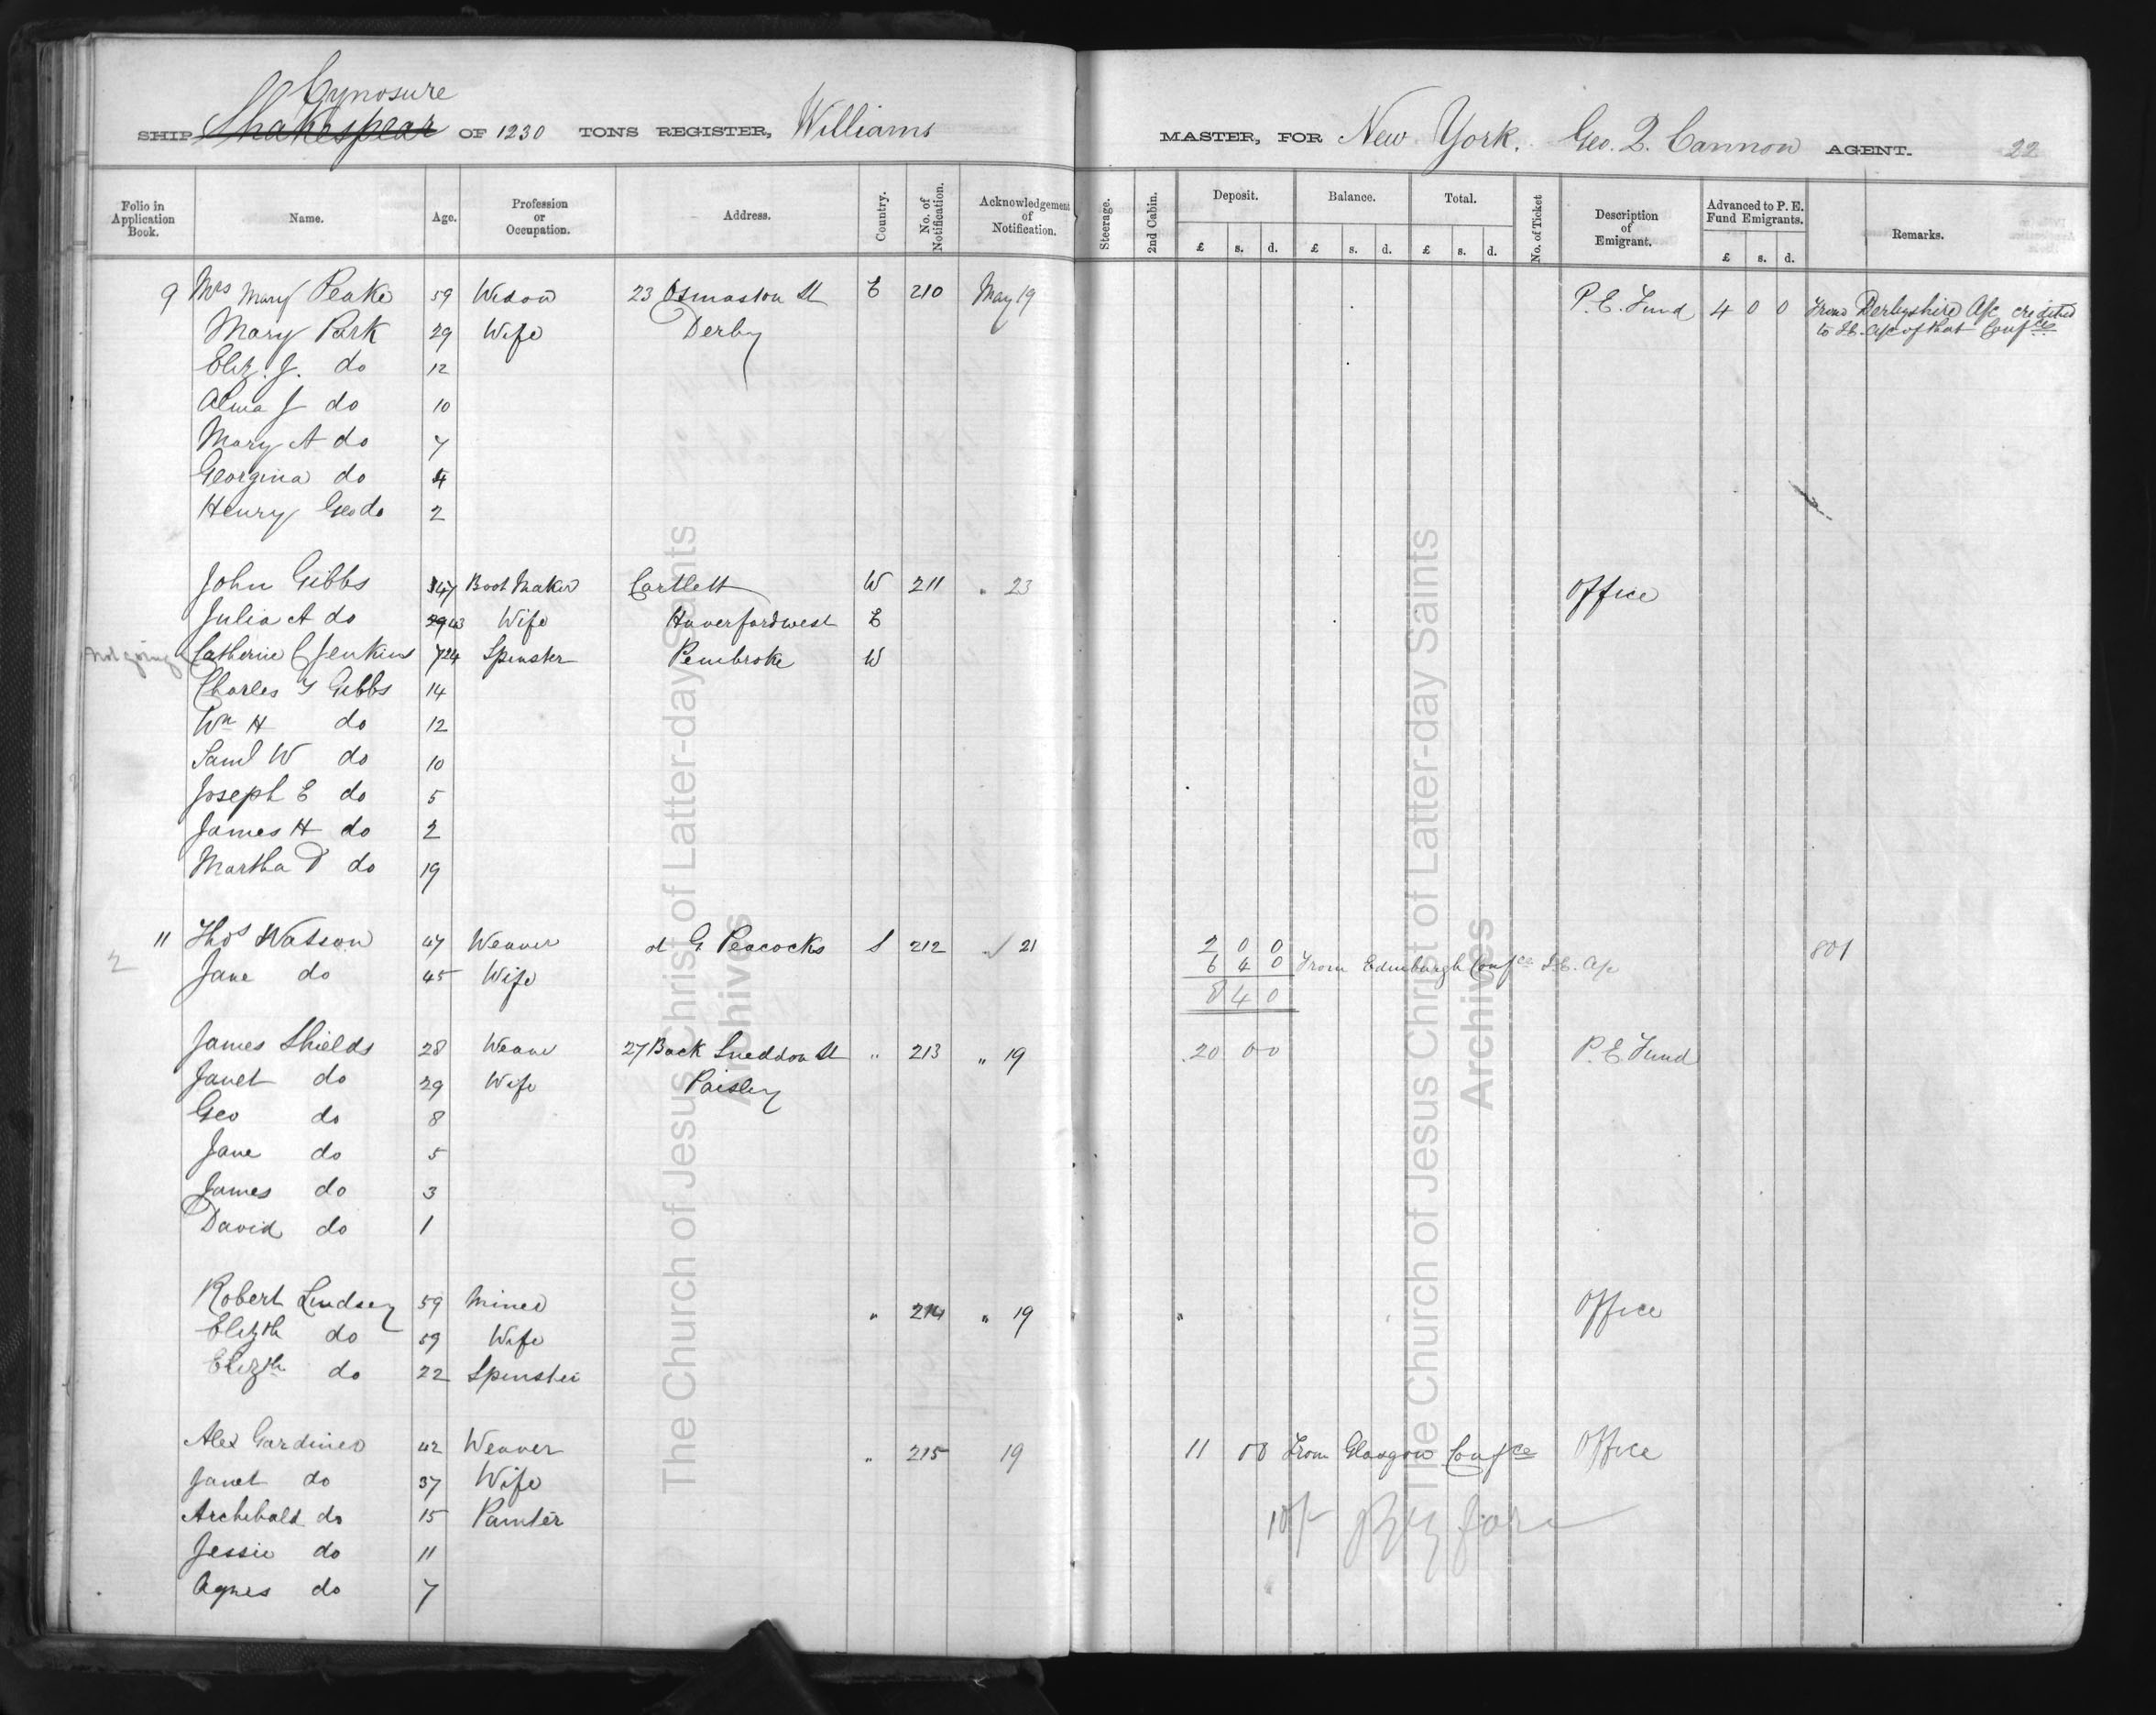 Cynosure
SHIP Shakespear OF 1230 TONS REGISTER, Williams MASTER, FOR New York. Geo. Q. Cannon AGENT. 22
Folio in Application Book. Name. Age. Profession or Occupation. Address. Country. No. of Notification. Acknowledgement of Notification. Steerage. 2nd Cabin. Deposit. Balance. Total. No. of Ticket Description of Emigrant. Advanced to P. E. Fund Emigrants. Remarks.
£ s. d. £ s. d. £ s. d. £ s. d.
9 Mrs Mary Peake 59 Widow 23 Osmaston St E 210 May 19 P. E. Fund 4 0 0 From Derbyshire A/c credited
Mary Park 29 Wife Derby to I.E. A/c of that Confce
Eliz. J. do 12
Alma J do 10
Mary A do 7
Georgina do 4
Henry Geo do 2
John Gibbs 47 Boot Maker Cartlett W 211 " 23 Office
Julia A do 43 Wife Haverfordwest E
Not going Catherine C Jenkins 24 Spinster Pembroke W
Charles Gibbs 14
Wm H do 12
Saml W do 10
Joseph E do 5
James H do 2
Martha D do 19
11 Thos Watson 47 Weaver at G. Peacocks S 212 " 21 2 0 0 801
2 Jane do 45 Wife 6 4 0 From Edinburgh Confce I.E. A/c
8 4 0
James Shields 28 Weaver 27 Back Sneddon St " 213 " 19 20 0 0 P. E. Fund
Janet do 29 Wife Paisley
Geo do 8
Jane do 5
James do 3
David do 1
Robert Lindsey 59 Miner " 214 " 19 " Office
Elizth do 59 Wife
Elizth do 22 Spinster
Alex Gardiner 42 Weaver " 215 19 11 0 0 From Glasgow Confce Office
Janet do 37 Wife
Archibald do 15 Painter 10/-
Jessie do 11
Agnes do 7
The Church of Jesus Christ of Latter-day Saints
Archives
The Church of Jesus Christ of Latter-day Saints
Archives